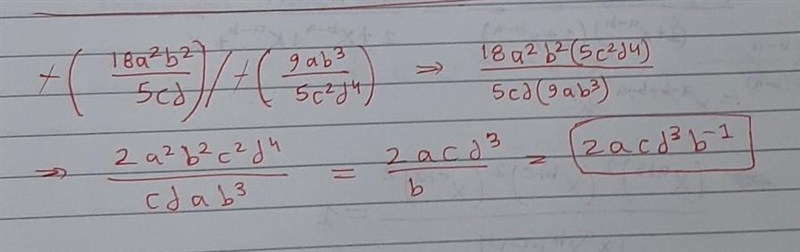 +(18a²b²/5cd)/+(9ab³/5c²d⁴) ⇒ 18a²b²(5c²d⁴)/5cd(9ab³)
⇒ 2a²b²c²d⁴/cdab³ = 2acd³/b = 2acd³b⁻¹